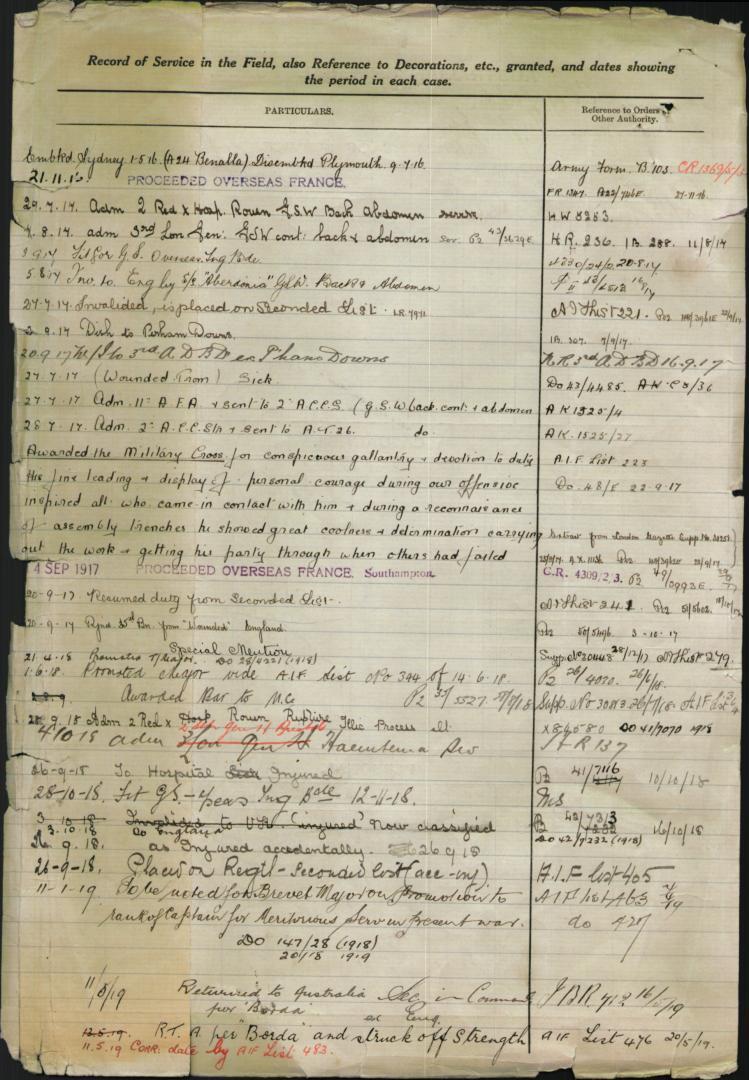 Record of Service in the Field, also Reference to Decorations, etc., granted, and dates showing
the period in each case.
PARTICULARS.
Reference to Orders or
Other Authority.
Embkd. Sydney 1.5.16. (A24 Benalla) Disembkd Plymouth 9.7.16
Army Form B 103. CR 1369/5/2
21.11.16. PROCEEDED OVERSEAS FRANCE.
FR 1347. A22/746E. 27-11-16.
29.7.17. Adm 2 Red x Hosp. Rouen G.S.W Back Abdomen severe.
HW 8283.
4.8.17. adm 3rd Lon Gen: GSW cont: back & abdomen Sev.
H.R. 236. 1B 288. 11/8/17
3.9.17 Fit for G.S. Overseas Trg Bde.
5.8.17 Inv. to Eng by S/S "Aberdonia" GSW. Back & Abdomen
27-7-17. Invalided, is placed on Seconded List. LR.7911
AIF List 221.
2.9.17 Disch to Perham Downs.
1B. 307. 7/9/17.
20.9.17 M/I to 3rd A.D.B.D ex Phane Downs
H.R 3rd A.D.B.D 16.9.17
27-7-17 (Wounded From) Sick
Do 43/4485. AK CS/36
27-7.17. Adm. 11th A.F.A. & sent to 2nd A.C.C.S. (G.S.W back. cont. & abdomen
AK 1525/4
28-7-17. Adm. 2nd A.C.C. Stn & sent to A.T. 26. do.
AK. 1525/27
Awarded the Military Cross for conspicuous gallantry & devotion to duty
A.I.F. List 223
His fine leading & display of personal courage during our offensive
Do. 48/E 22.9.17
inspired all who came in contact with him & during a reconnaisance
of assembly trenches he showed great coolness & determination carrying
Extract from London Gazette Supp No. 30251.
out the work & getting his party through when others had failed
4 SEP 1917 PROCEEDED OVERSEAS FRANCE. Southampton.
C.R. 4309/2/3.
20-9-17 Resumed duty from Seconded List.
AIF List 241.
20-9-17 Rejnd 35th Bn. from "Wounded" England.
3-10-17
Special Mention
DO 28/4221 (1918)
Supp No 30448 28/12/17 AIF List 279.
21.4.18 Promoted T/Major.
1.6.18. Promoted Major vide AIF List No 394 of 14.6.18.
P2 26/4070. 26/6/18.
Awarded Bar to M.C P2 37/5527
Supp. No 30813. 26/7/18. AIF List
28.9.18 Adm 2 Red x Hosp Rouen Rupture
X868580 DO 41/7070 1918
4/10/18 adm 3/Lon Gen H Haematema Sev
H R 137
26-9-18 To Hospital Sick Injured
41/7116 10/10/18
28-10-18. Fit GS. Trg Bde 12-11-18.
MS
3.10.18 Invalided to U.K. "injured" Now classified
42/7313 16/10/18
3.10.18 Do England
26.9.18. as Injured accidentally. 26.9.18
DO 42/7232 (1918)
26-9-18. Placed on Regtl-Seconded List (acc-inj)
A.I.F. List 405
11-1-19 To be noted for Brevet Major on promotion to
AIF List 463
rank of Captain for Meritorious Serv in Present war.
do 427
DO 147/28 (1918)
20/18 1919
11/5/19 Returned to Australia Sec in Command
J BR 712 16/5/19
per "Borda" ex Eng.
12.5.19. R.T.A per "Borda" and struck off Strength
AIF List 476 20/5/19.
11.5.19 Corr. date by AIF List 483.